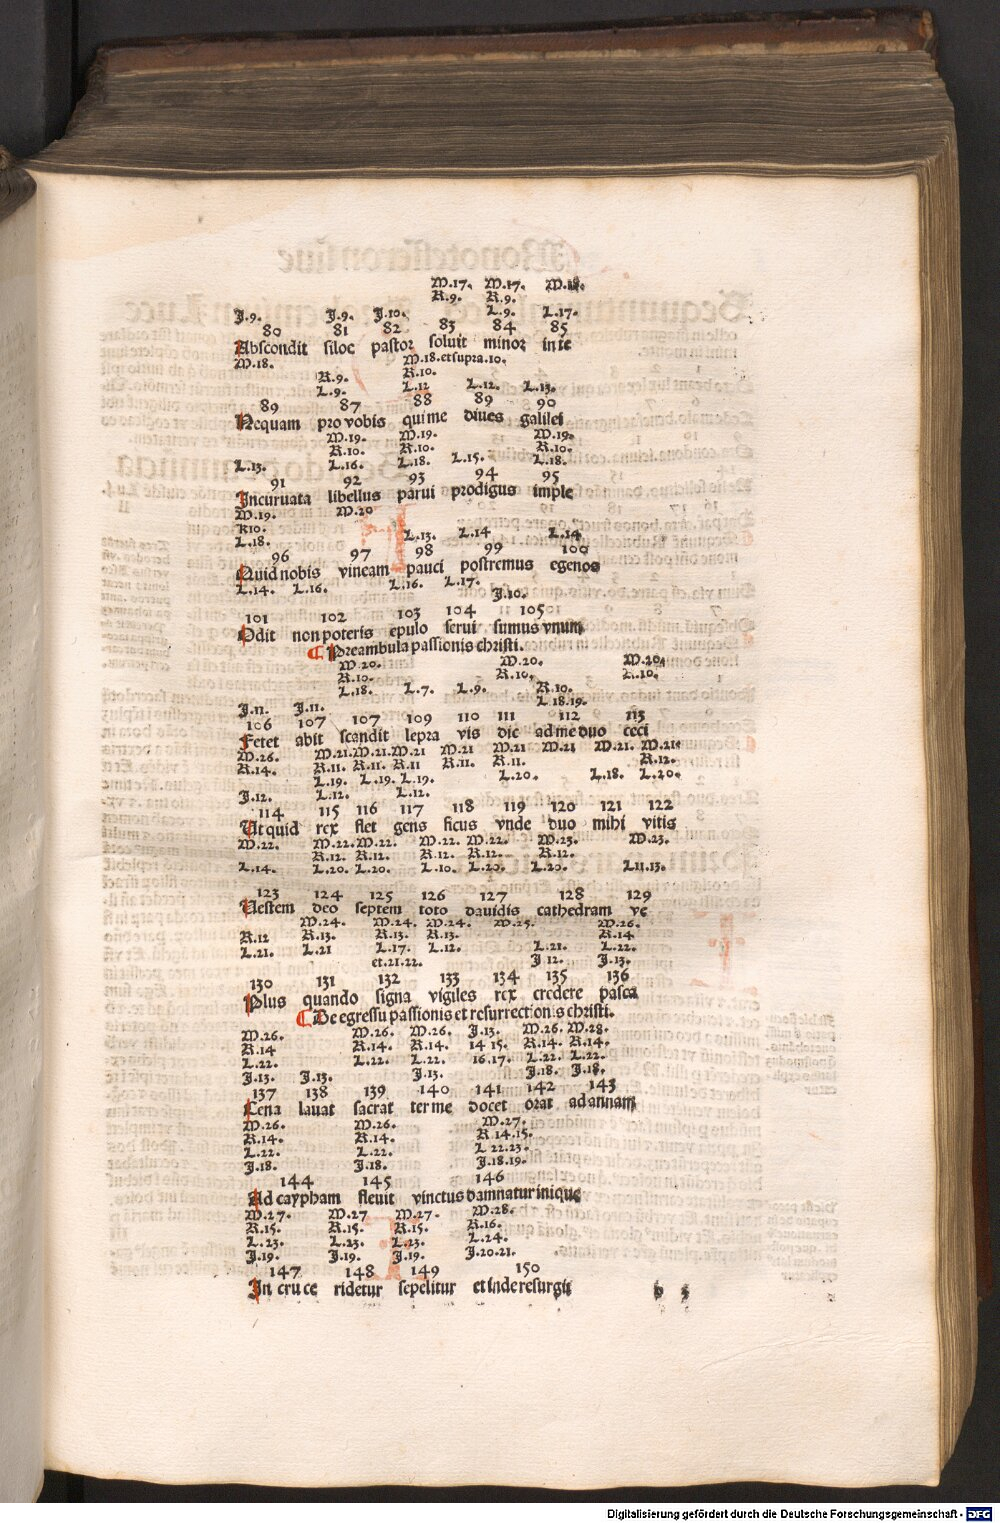 M.17. M.17. M.18.
R.9. R.9.
J.9. J.9. J.10. L.9. L.17.
80 81 82 83 84 85
Abscondit siloe pastor soluit minor in te
M.18. M.18.et supra.10.
R.9. R.10.
L.9. L.12 L.12. L.13.
89 87 88 89 90
Nequam pro vobis qui me diues galilei
M.19. M.19. M.19.
R.10. R.10. R.10.
L.13. L.16. L.18. L.15. L.18.
91 92 93 94 95
Incuruata libellus parui prodigus imple
M.19. M.20
R10.
L.18. L.13. L.14 L.14
96 97 98 99 100
Quid nobis vineam pauci postremus egenos
L.14. L.16. L.16. L.17.
J.10.
101 102 103 104 105
Odit non poteris epulo serui sumus vnum
Preambula passionis christi.
M.20. M.20. M.20.
R.10. R.10. R.10.
L.18. L.7. L.9. R.10.
J.11. J.11. L.18.19.
106 107 107 109 110 111 112 113
Fetet abit scandit lepra vis dic ad me duo ceci
M.26. M.21. M.21. M.21 M.21 M.21 M.21 M.21. M.21.
R.14. R.11. R.11. R.11 R.11. R.11. R.12.
L.19. L.19. L.19. L.20. L.18. L.20.
J.12. L.12. L.12.
114 115 116 117 118 119 120 121 122
Ut quid rex flet gens ficus vnde duo mihi vitis
M.22. M.22. M.22. M.22. M.22. M.23. M.23.
R.12. R.12. R.12. R.12. R.12.
L.14. L.20. L.20. L.10. L.20. L.20. L11.13.
123 124 125 126 127 128 129
Uestem deo septem toto dauidis cathedram ve
M.24. M.24. M.24. M.25. M.26.
R.12 R.13. R.13. R.13. R.14
L.21. L.21 L.17. L.12. L.21. L.22.
et.21.22. J 12. J.13.
130 131 132 133 134 135 136
Plus quando signa vigiles rex credere pasca
De egressu passionis et resurrectionis christi.
M.26. M.26. M.26. J.13. M.26. M.28.
R.14 R.14. R.14. 14 15. R.14. R.14.
L.22. L.22. L.22. 16.17. L.22. L.22.
J.13. J.13. J.13. J.18. J.18.
137 138 139 140 141 142 143
Cena lauat sacrat ter me docet orat ad annam
M.26. M.26. M.27.
R.14. R.14. R.14.15.
L.22. L.22. L 22.23.
J.18. J.18. J.18.19.
144 145 146
Ad caypham fleuit vinctus damnatur inique
M.27. M.27 M.27. M.28.
R.15. R.15. R.15. R.16.
L.23. L.23. L.23. L.24.
J.19. J.19. J.19. J.20.21.
147 148 149 150
In cru ce ridetur sepelitur et inde resurgit
b 3
Digitalisierung gefördert durch die Deutsche Forschungsgemeinschaft - DFG